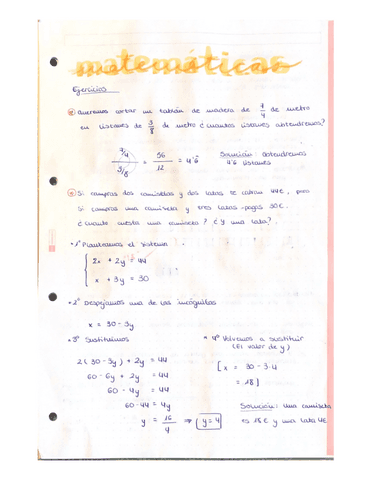 matemáticas
Ejercicios
Queremos cortar un tablón de madera de 7/4 de metro
en listones de 3/8 de metro ¿cuantos listones obtendremos?
7/4 / 3/8 = 56/12 = 4'6
Solución obtendremos
4'6 listones
Si compras dos camisetas y dos tazas te cobran 44€, pero
si compras una camiseta y tres tazas pagas 30€.
¿cuanto cuesta una camiseta? ¿y una taza?
1º Planteamos el sistema
2x + 2y = 44
x + 3y = 30
2º Despejamos una de las incógnitas
x = 30-3y
3º Sustituimos
2(30-3y) + 2y = 44
60-6y + 2y = 44
60-4y = 44
60-44 = 4y
y = 16/4 ⇒ y=4
4º Volvemos a sustituir
(El valor de y)
[x = 30-3·4
= 18]
Solución: una camiseta
es 18€ y una taza 4€.